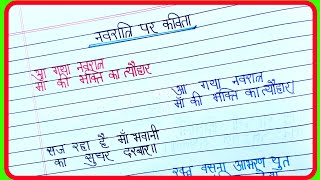 नवरात्रि पर कविता
आ गया नवरात्र
माँ की भक्ति का त्यौहार
सज रहा है माँ भवानी
का सुघर दरबार॥
आ गया नवरात्र
माँ की भक्ति का त्यौहार
रक्त वसना आभरण युत